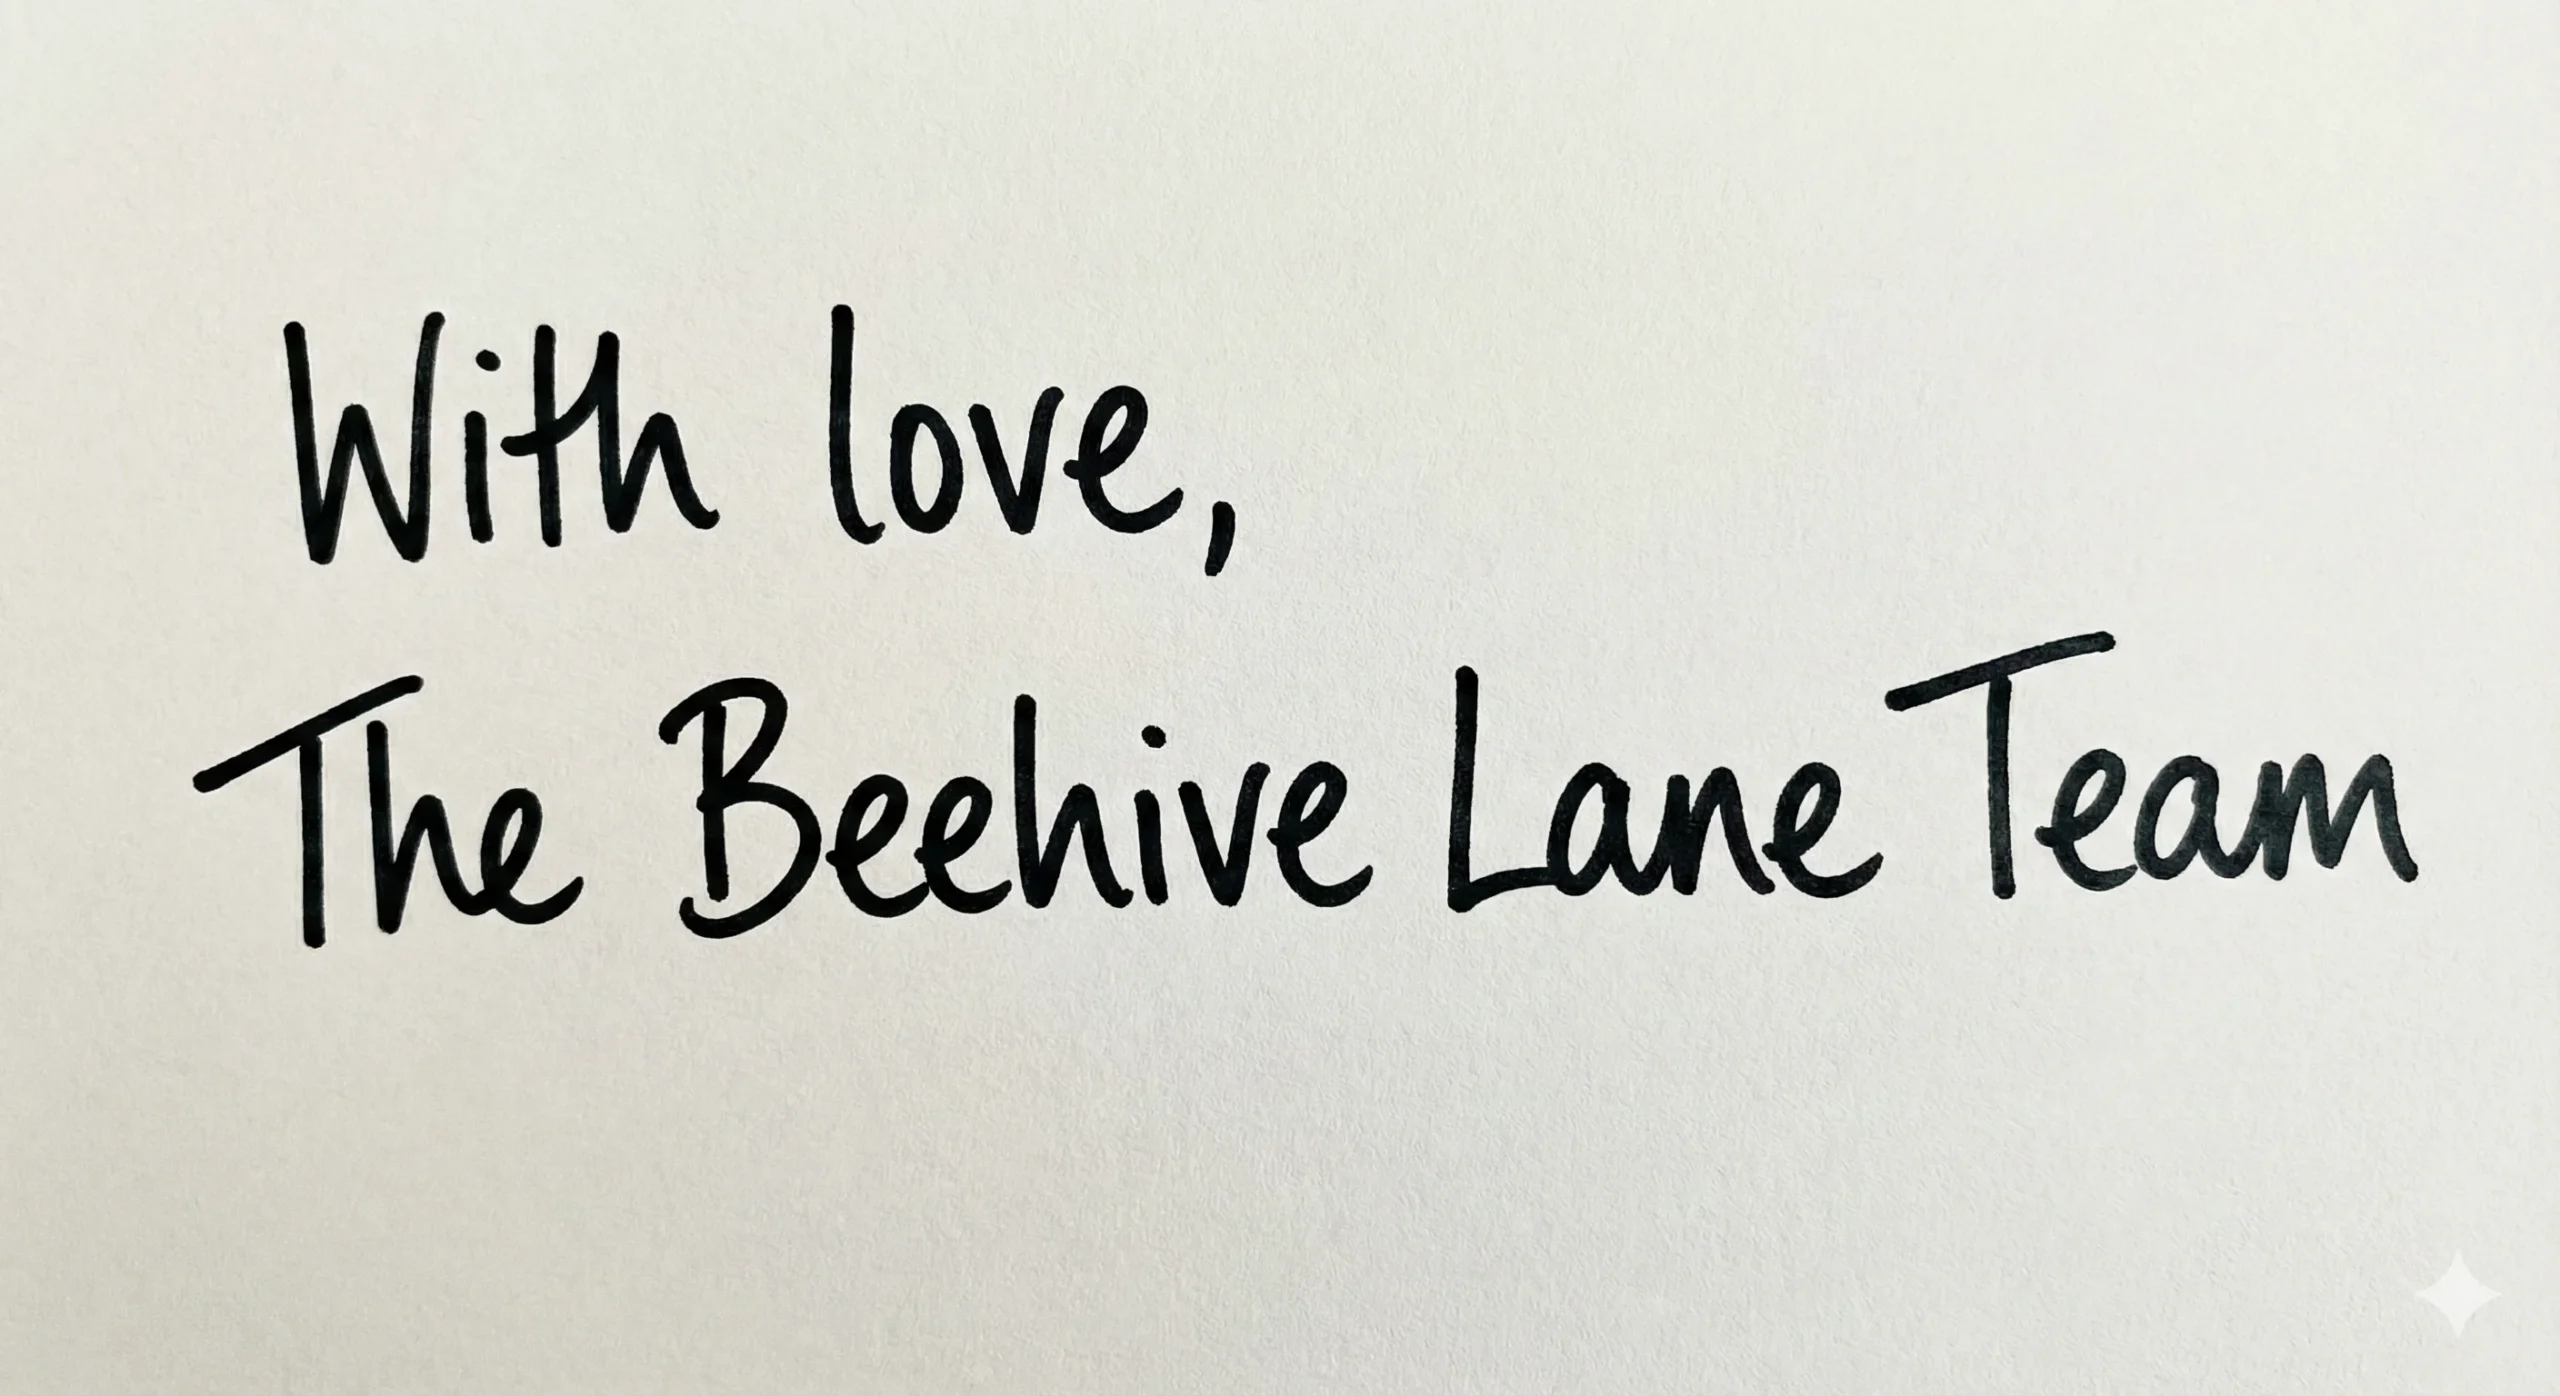 With love,
The Beehive Lane Team